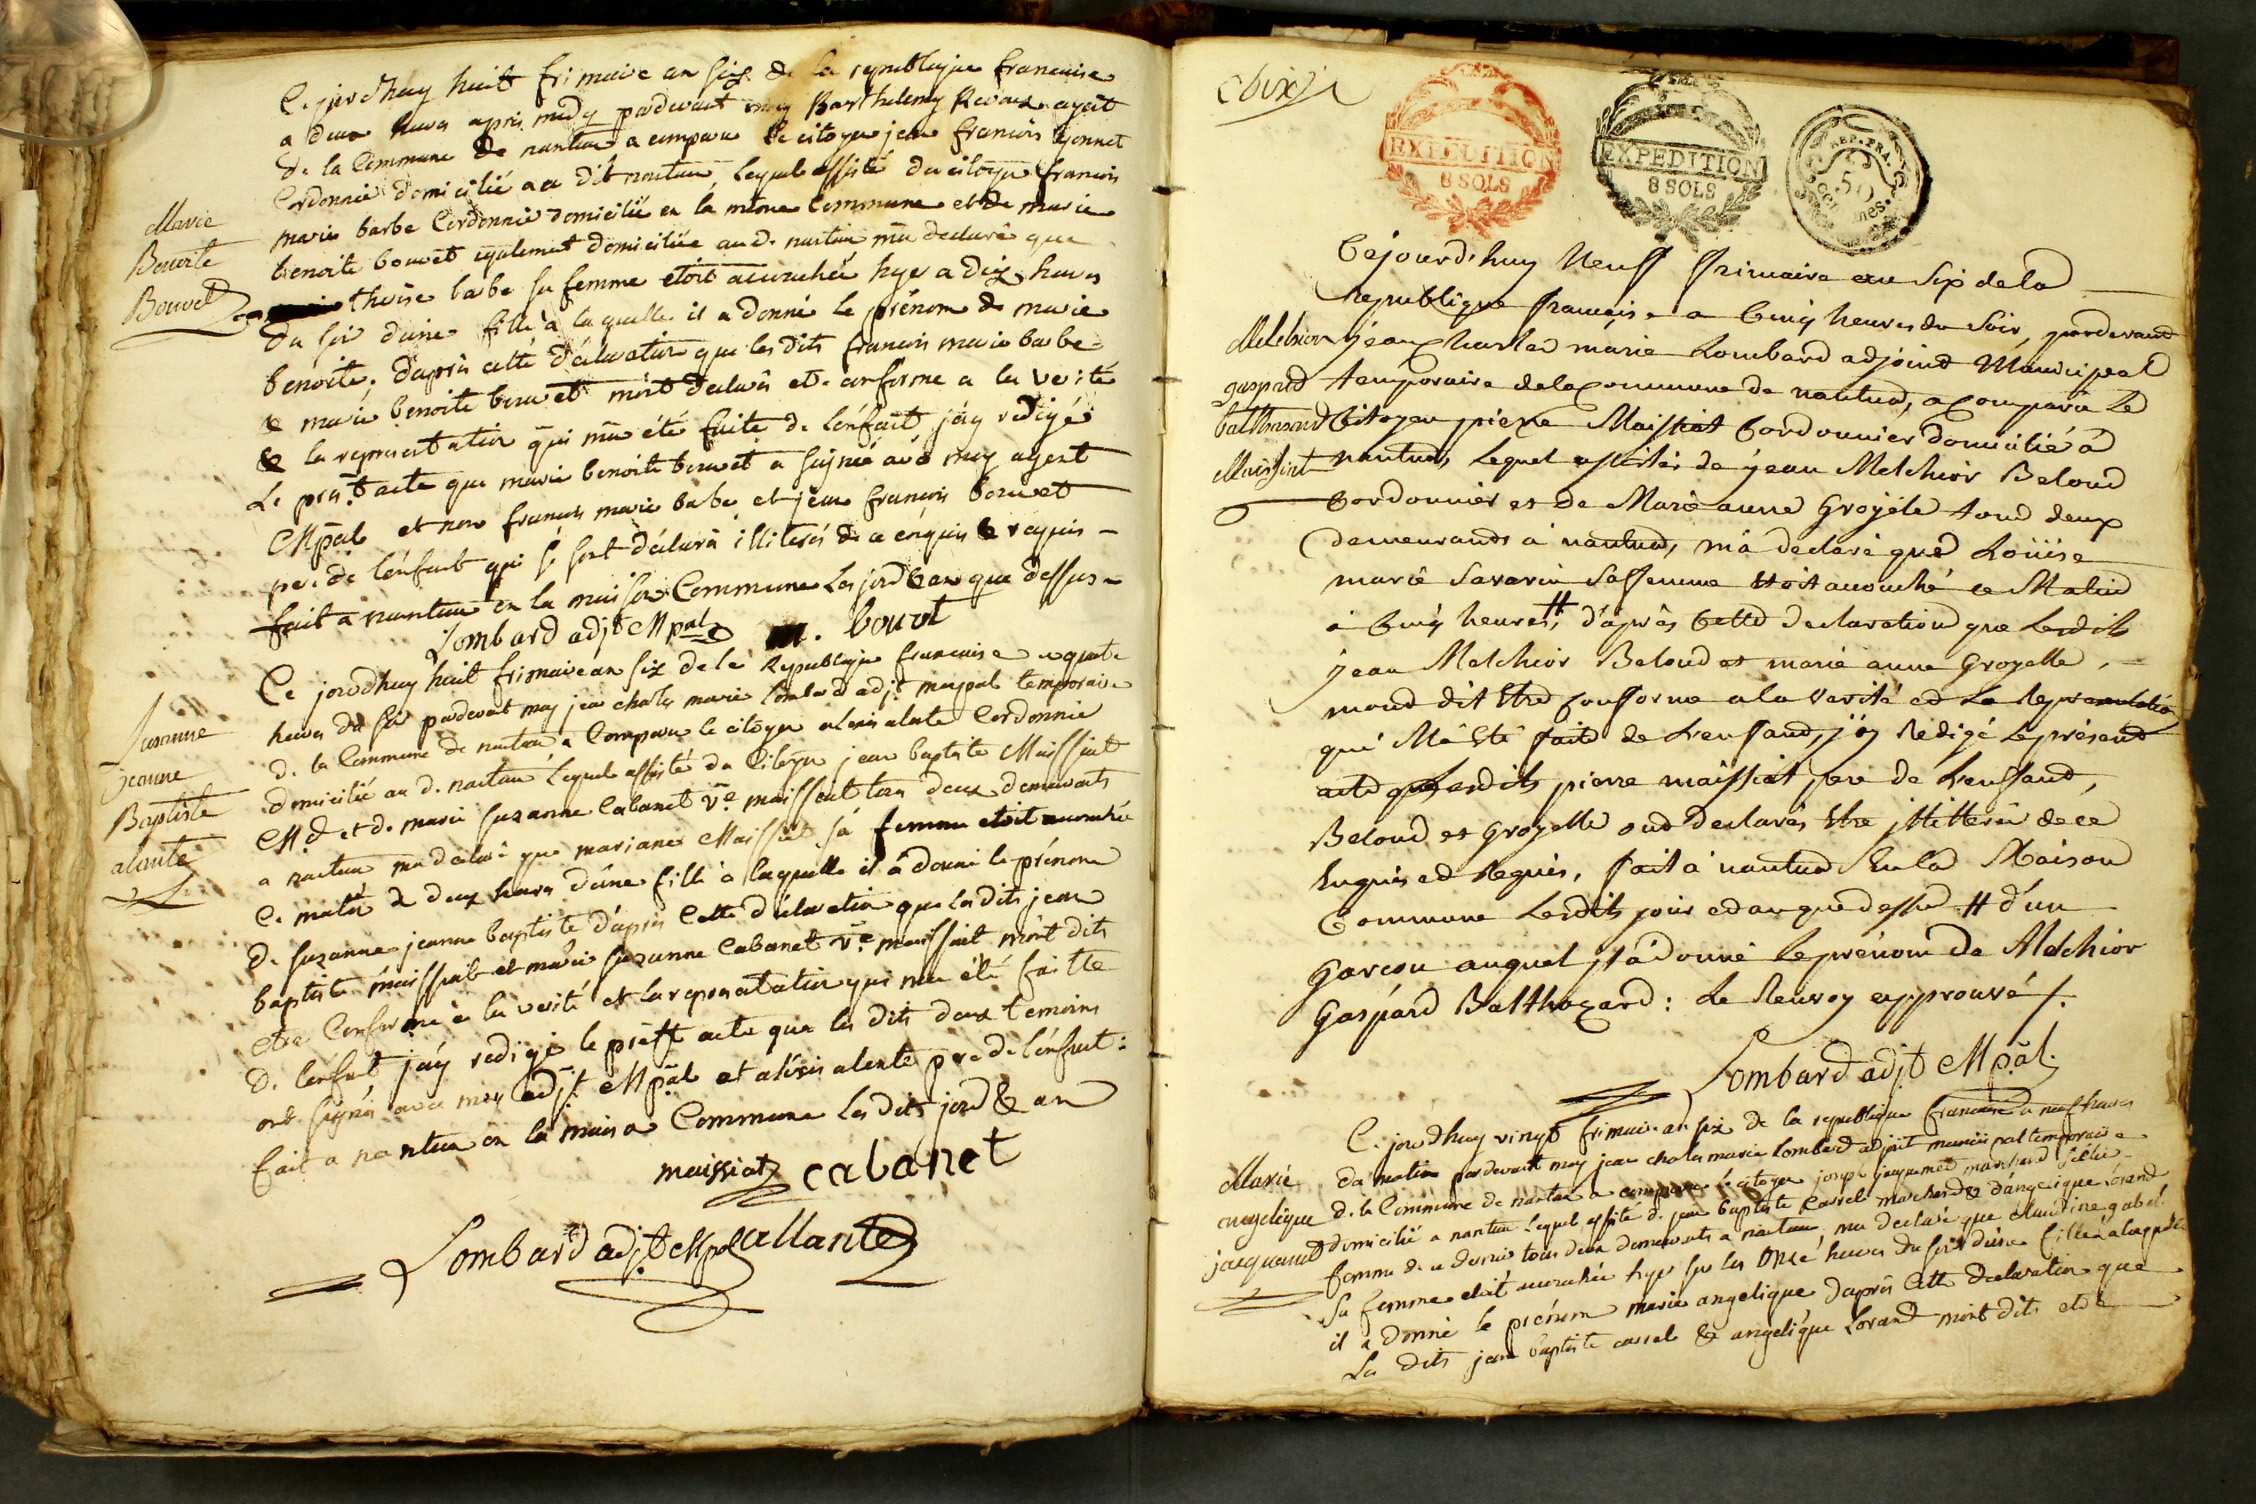 Marie
Benoite
Bouvet
Ce jourdhuy huit frimaire an six de la republique francaise
a deux heures apres midy pardevant moy Barthelemy agent
de la Commune de nantua a comparu le citoyen jean francois
Cordonnie domicilié au dit nantua, lequel assisté du citoyen francois
marie barbe Cordonnie domicilié en la même Commune et de marie
benoite bouvet également domiciliée au d. nantua m'a declaré que
therese barbe sa femme etoit accouchée hyer a dix heures
du soir d'une fille a laquelle il a donné le prénom de marie
benoite, d'après cette déclaration que les dits francois marie barbe
& marie benoite bouvet m'ont declaré etre conforme a la verité
& la representation qui m'a été faite de l'enfant j'ay redigé
Le pnt acte que marie benoite bouvet a signé avec moy agent
Mpal et non francois marie barbe et jean francois bouvet
pere de l'enfant qui se sont déclarés illiterés de ce enquis & requis
fait a nantua en la maison Commune les jour & an que dessus
Lombard adjt Mpal m. bouvt
Suzanne
jeanne
Baptiste
alante
Ce jourdhuy huit frimaire an six de la Republique francaise a quatre
heures du soir pardevant moy jean charles marie Lombard adjt mupal temporaire
de la Commune de nantua a Comparu le citoyen alexis alante Cordonnie
domicilié au d. nantua lequel assisté du Citoyen jean baptiste Maissiat
Md et de marie suzanne Cabanet Ve maissiat tous deux demeurants
a nantua m'a declaré que mariane Maissiat sa femme etoit accouchée
Ce matin a deux heures d'une fille à laquelle il a donné le prénom
de suzanne jeanne baptiste d'après Cette déclaration que les dits jean
baptiste maissiat et marie suzanne Cabanet Ve maissiat m'ont dits
etre Conforme à la verité et la representation qui m'a été faitte
de l'enfant j'ay redigé le présent acte que les dits deux temoins
ont signés avec moy adjt Mpal et alexis alante pere de l'enfant:
fait a nantua en la maison Commune les dits jour & an
maissiat cabanet
Lombard adjt Mpal allante
EXPEDITION
8 SOLS
EXPEDITION
8 SOLS
REP. FRA.
50
Centimes.
Melchior
gaspard
balthazard
Maissiat
Cejourd'huy Neuff frimaire an Six de la
republique francaise a Cinq heures du Soir, pardevant
jean Charles marie Lombard adjoint Municipeal
temporaire de la Commune de nantua, a Comparu Le
Citoyen pierre Maissiat Cordonnier domicilié à
nantua, Lequel assistés de jean Melchior Beloud
Cordonnier et de Marie anne Groyelle tous deux
demeurants à nantua, m'a declaré que Loüise
marie Savarin Saffemme Etoit accouché ce Matin
à Cinq heures #, d'après Cette declaration que Lesdits
jean Melchior Beloud et marie anne Groyelle,
mond dit Etre Conforme a la Verité et La Representation
qui M'a Eté faite de L'enffand, j'ay Redigé Le présent
acte que Lesdits pierre maissiat pere de L'enffand,
Beloud et Groyelle ond declarés Etre jllitterés de ce
Enquis et Requis, fait à nantua En la Maison
Commune Lesdits jour et an que dessu # d'un
Garçon auquel jl a donné Le prénom de Melchior
Gaspard Balthazard : Le Renvoy approuvé /.
Lombard adjt Mpal.
Marie
angelique
jacquemet
Ce jourdhuy vingt frimaire an six de la republique francaise a neuf heures
du matin pardevant moy jean charles marie Lombard adjoint municipal temporaire
de la Commune de nantua a comparu le citoyen joseph jacquemet marchand Sellie
domicilié a nantua lequel assisté de jean baptiste Cassel marchand & d'angelique Lorand
femme de ce dernier tous deux demeurants a nantua, m'a declaré que Claudine gabet
sa femme etoit accouchée hyer sur les onze heures du soir d'une fille a laquelle
il a donné le prénom marie angelique d'après Cette declaration que
Les dits jean baptiste cassel & angelique Lorand m'ont dits etre